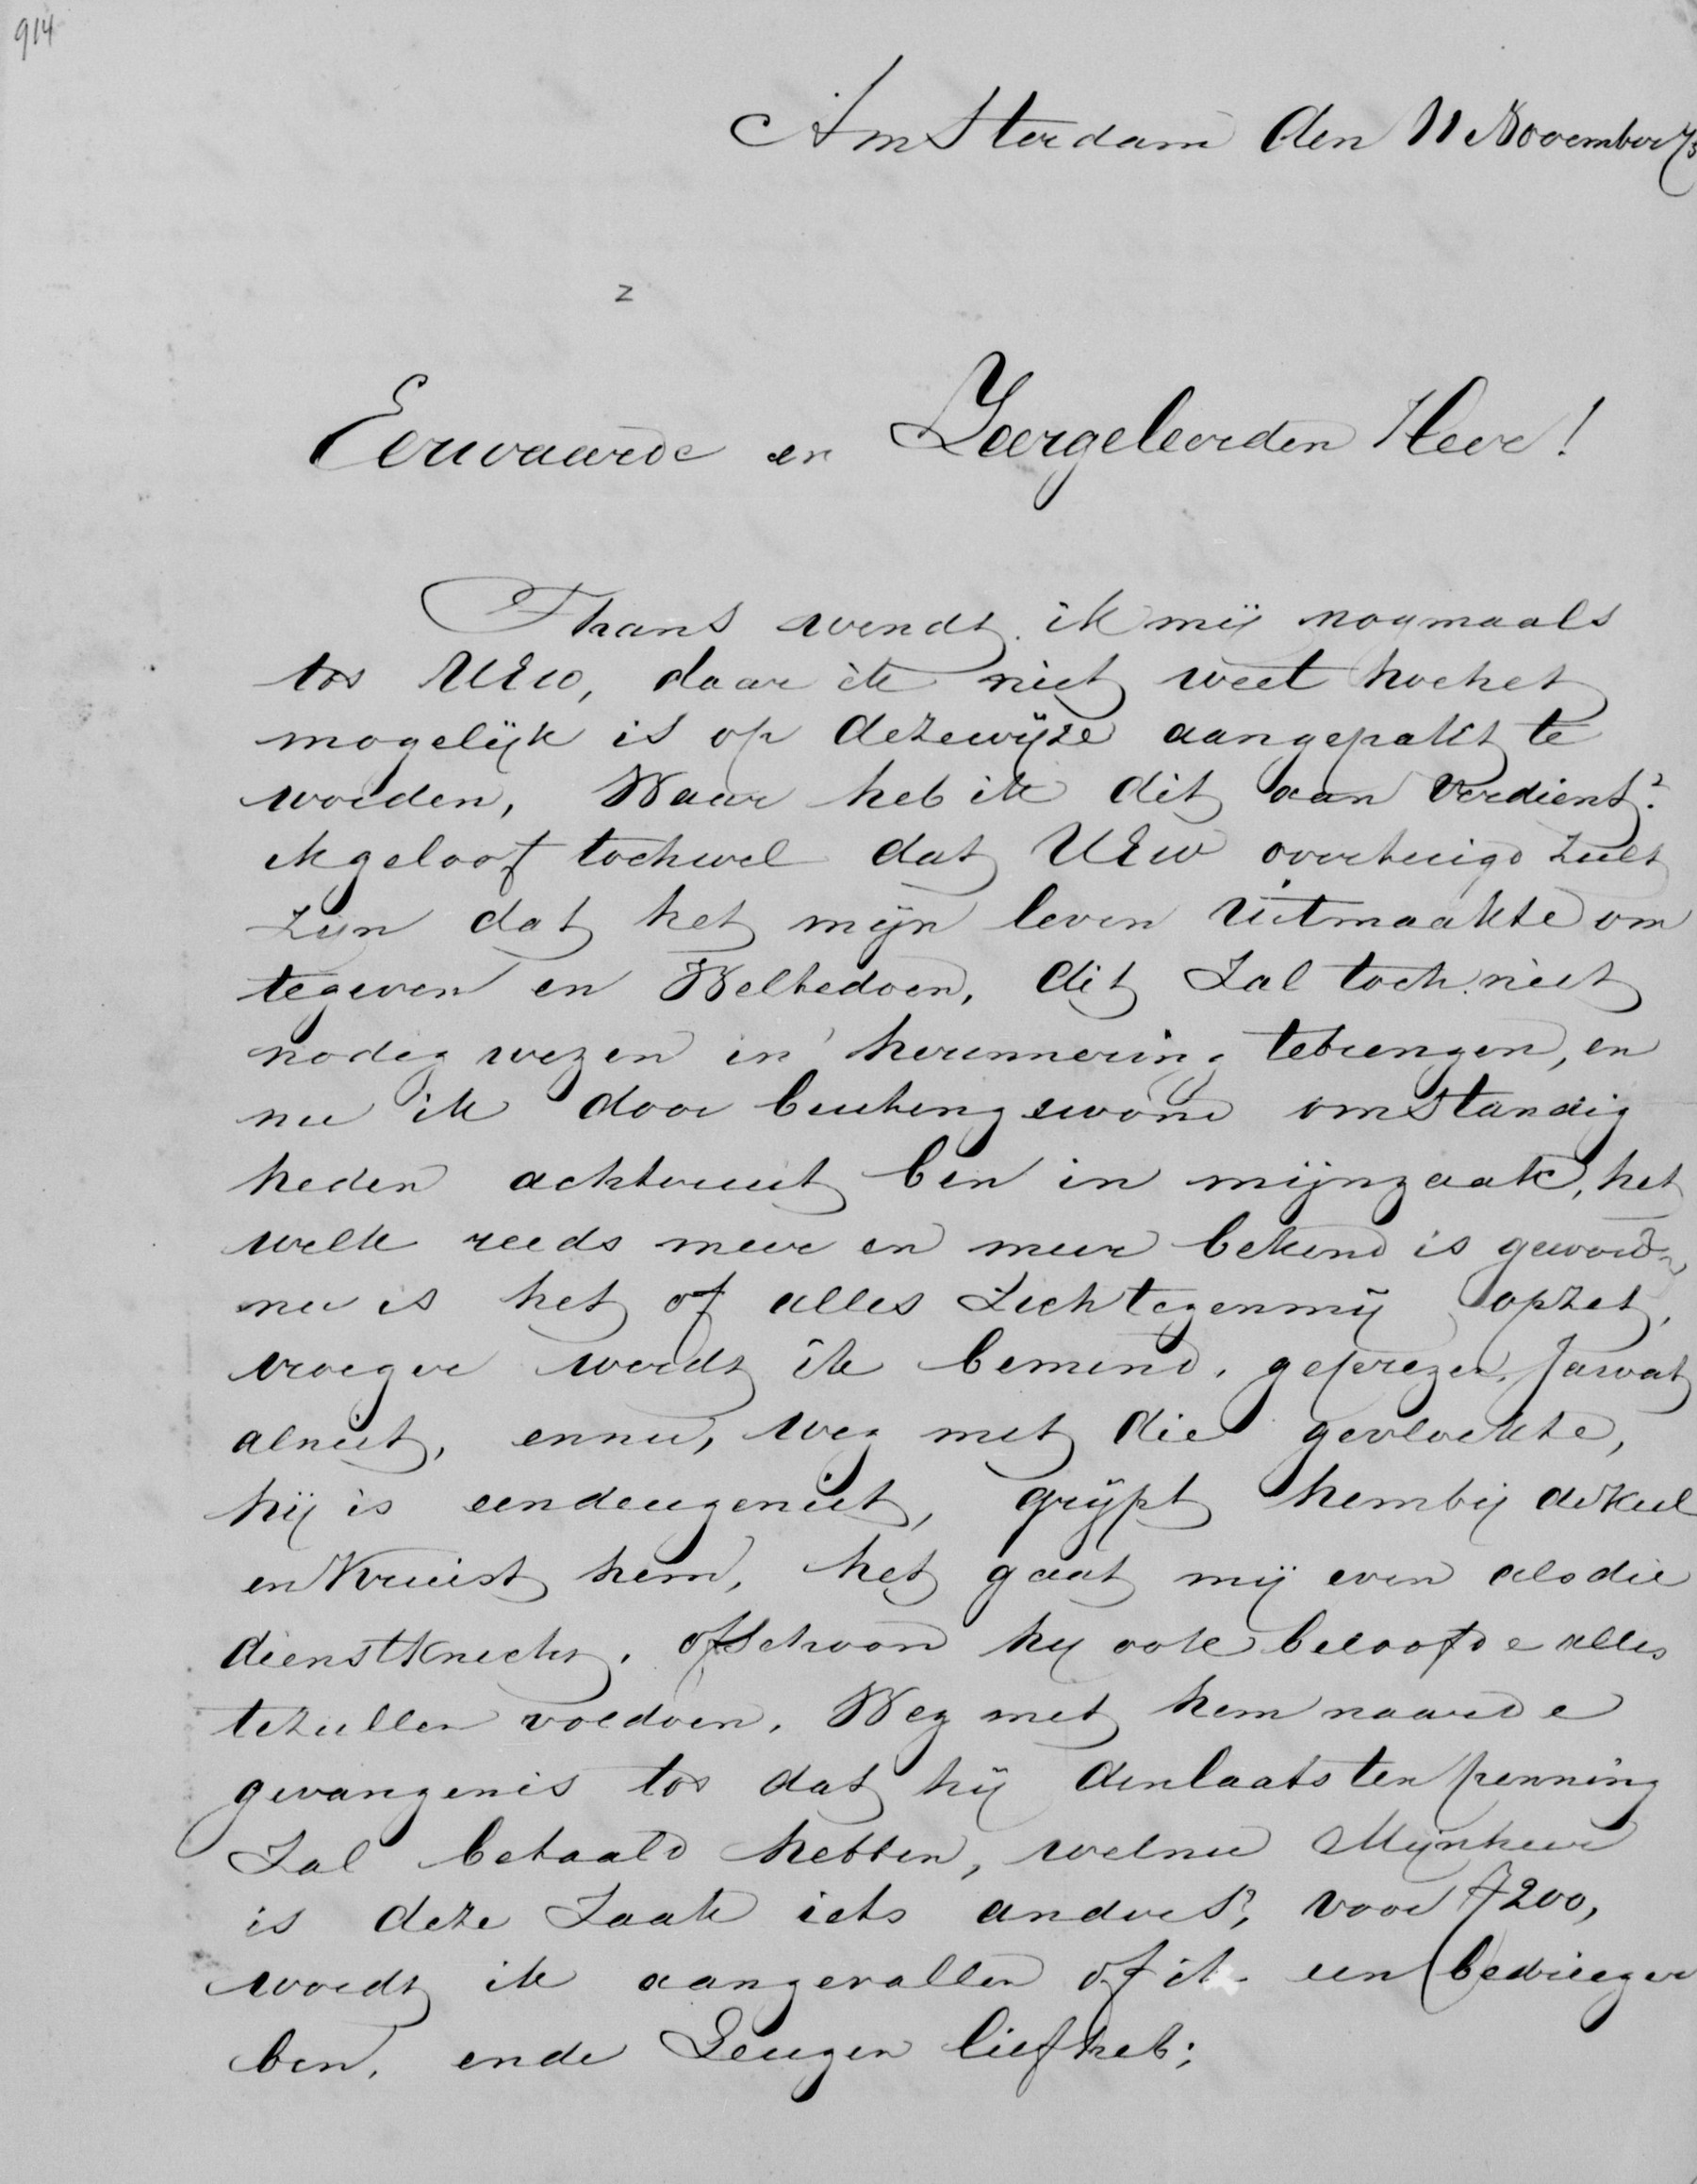 914
Amsterdam den 11 November 73
2
Eerwaarde en Zeergeleerden Heer!
Thans wendt ik mij nogmaals
tot UEw, daar ik niet weet hoehet
mogelijk is op dezewijze aangepakt te
worden, Waar heb ik dit aan verdient?
ik geloof tochwel dat UEw overtuigd zult
zijn dat het mijn leven uitmaakte om
tegeven en Weltedoen, dit Zal toch niet
nodig wezen in herinnering tebrengen, en
nu ik door buitengewone omstandig
heden achteruit ben in mijnzaak, het
welk reeds meer en meer bekend is geworden
nu is het of alles Zich tegenmij opzet,
vroeger werdt ik bemind, geprezen, Jawat
alniet, ennu, weg met die gevloekte,
hij is eendeugeniet, grijpt hembij dekeel
en Kruist hem, het gaat mij even alsdie
dienstknecht, ofschoon hij ook beloofde alles
tezullen voldoen, Weg met hem naarde
gevangenis tot dat hij denlaatsten penning
Zal betaald hebben, welnu Mijnheer
is deze Zaak iets anders?, voor f200,
wordt ik aangevallen of ik een bedrieger
ben, ende Leugen liefheb;